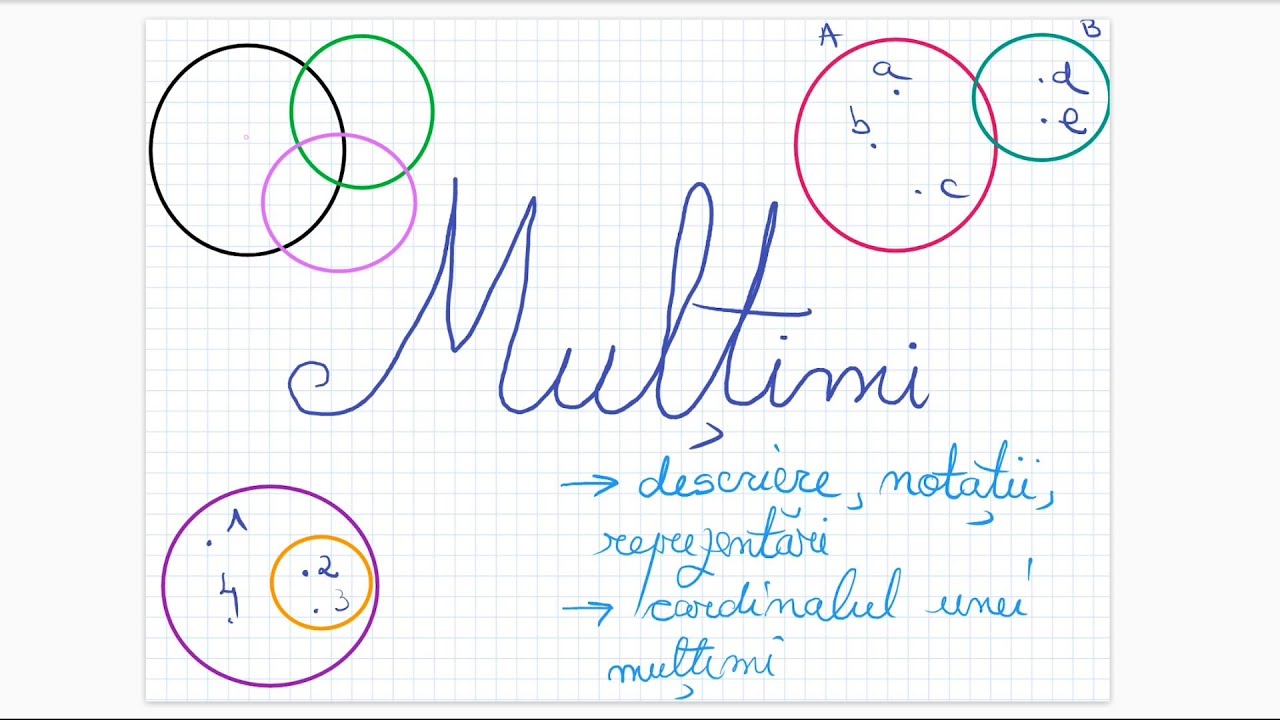 A
B
a
d
b
e
c
Mulțimi
→ descriere, notații,
reprezentări
→ cardinalul unei
mulțimi
1
2
4
3